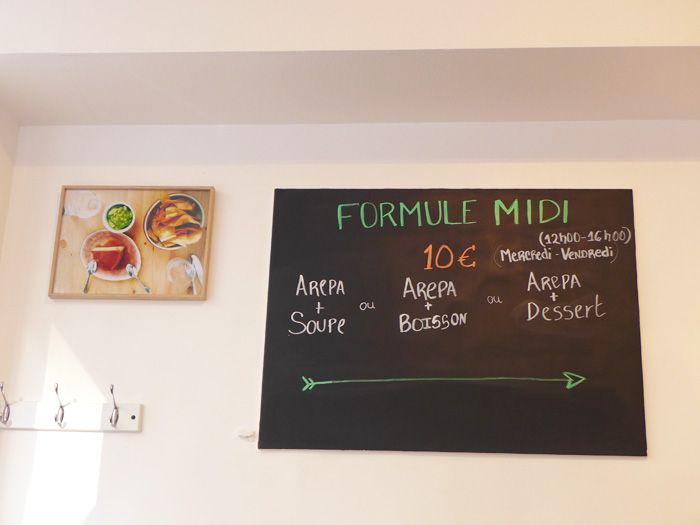 FORMULE MIDI
10€ (12h00-16h00)
(Mercredi-Vendredi)
Arepa + Soupe ou Arepa + Boisson ou Arepa + Dessert